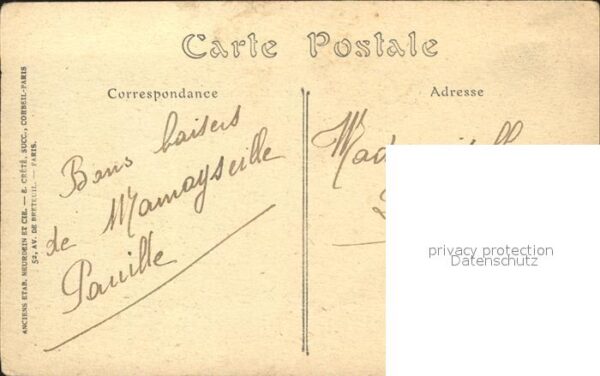 Carte Postale
Correspondance
Adresse
Bons baisers
de Mamayseille
Paville
ANCIENS ETAB. NEURDEIN ET CIE. — E. CRÉTÉ, SUCC., CORBEIL-PARIS
52, AV. DE BRETEUIL. — PARIS.
privacy protection
Datenschutz